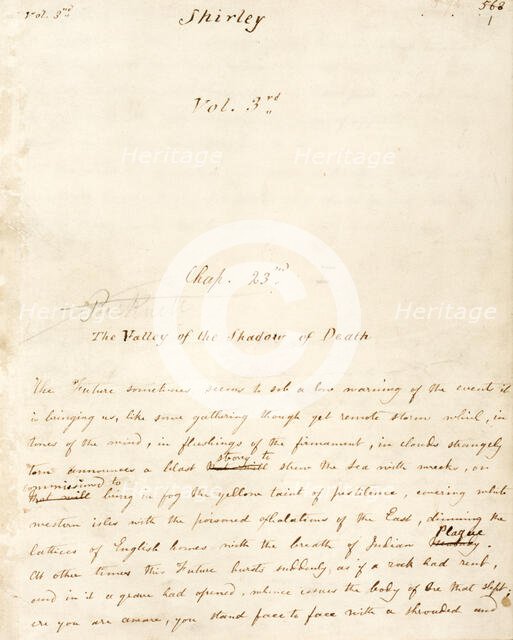 Vol. 3rd
Shirley
568
1
Vol. 3rd
Heritage
Heritage
Chap. 23nd
The Valley of the Shadow of Death
Heritage
Heritage
The Future sometimes seems to sob a low warning of the events it
is bringing us, like some gathering though yet remote storm which, in
tones of the wind, in flushings of the firmament, in clouds strangely
strong to
torn announces a blast that will strew the sea with wrecks, or
commissioned to
that will bring in fog the yellow taint of pestilence, covering white
western isles with the poisoned exhalations of the East, dimming the
Plague
lattices of English homes with the breath of Indian
At other times this Future bursts suddenly, as if a rock had rent,
and in it a grave had opened, whence issues the body of One that slept;
ere you are aware, you stand face to face with a shrouded and
Heritage
Heritage